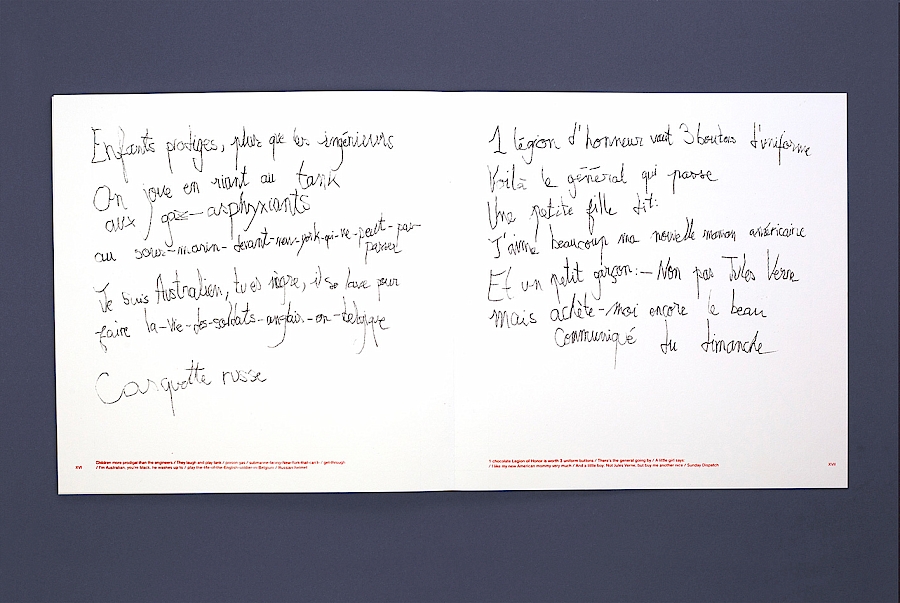 Enfants prodiges, plus que les ingénieurs
On joue en riant au tank
aux gaz-asphyxiants
au sous-marin-devant-new-york-qui-ne-peut-pas-
passer
Je suis Australien, tu es nègre, il se lave pour
faire la-vie-des-soldats-anglais-en-belgique
Casquette russe
XVI
Children more prodigal than the engineers / They laugh and play tank / poison gas / submarine-facing-New-York-that-can't- / get-through
/ I'm Australian, you're black, he washes up to / play the-life-of-the-English-soldier-in-Belgium / Russian helmet
1 légion d'honneur vaut 3 boutons d'uniforme
Voilà le général qui passe
Une petite fille dit:
J'aime beaucoup ma nouvelle maman américaine
Et un petit garçon:-Non pas Jules Verne
mais achète-moi encore le beau
Communiqué du dimanche
1 chocolate Legion of Honor is worth 3 uniform buttons / There's the general going by / A little girl says:
/ I like my new American mommy very much / And a little boy: Not Jules Verne, but buy me another nice / Sunday Dispatch
XVII